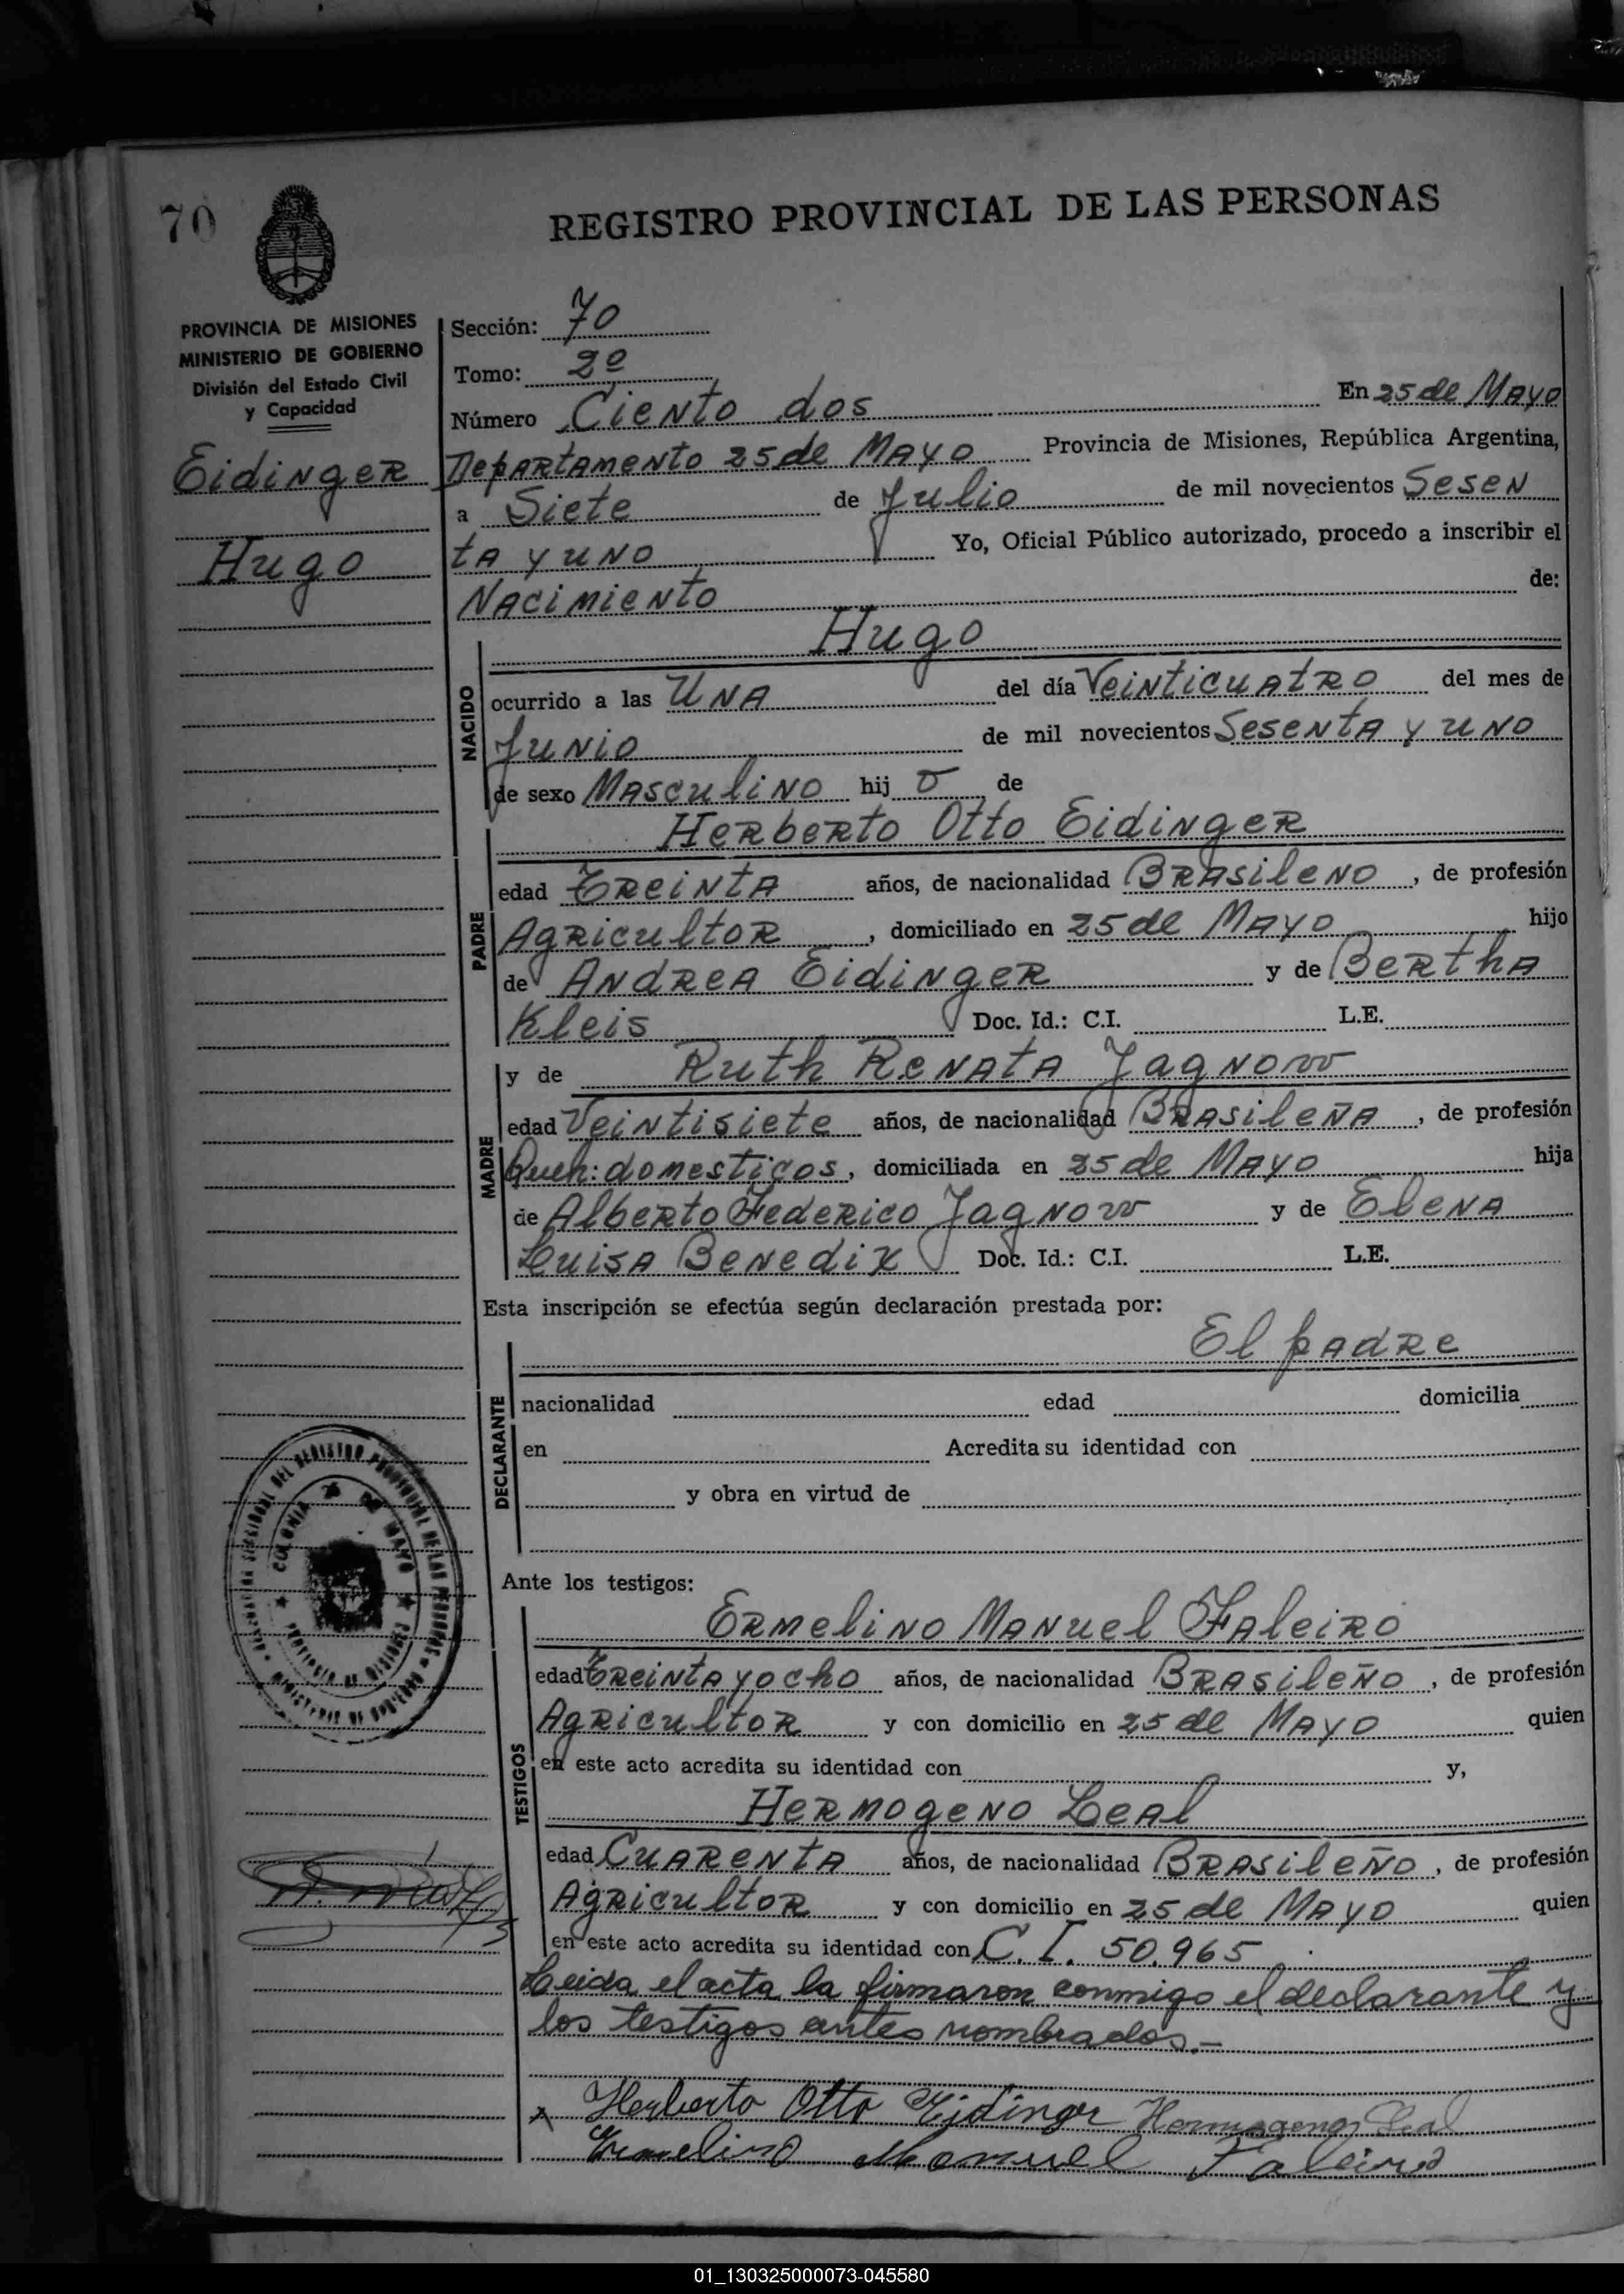 70
REGISTRO PROVINCIAL DE LAS PERSONAS
PROVINCIA DE MISIONES
MINISTERIO DE GOBIERNO
División del Estado Civil
y Capacidad
Eidinger
Hugo
Sección: 70
Tomo: 2º
Número Ciento dos En 25 de Mayo
Departamento 25 de Mayo Provincia de Misiones, República Argentina,
a Siete de Julio de mil novecientos Sesen
ta y uno Yo, Oficial Público autorizado, procedo a inscribir el
Nacimiento de:
NACIDO
Hugo
ocurrido a las Una del día Veinticuatro del mes de
Junio de mil novecientos Sesenta y uno
de sexo Masculino hij o de
PADRE
Herberto Otto Eidinger
edad Treinta años, de nacionalidad Brasileno, de profesión
Agricultor, domiciliado en 25 de Mayo hijo
de Andrea Eidinger y de Bertha
Kleis Doc. Id.: C.I. L.E.
MADRE
y de Ruth Renata Jagnow
edad Veintisiete años, de nacionalidad Brasileña, de profesión
Queh: domesticos, domiciliada en 25 de Mayo hija
de Alberto Federico Jagnow y de Elena
Luisa Benedix Doc. Id.: C.I. L.E.
Esta inscripción se efectúa según declaración prestada por:
DECLARANTE
El padre
nacionalidad edad domicilia
en Acredita su identidad con
y obra en virtud de
Ante los testigos:
TESTIGOS
Ermelino Manuel Faleiro
edad Treinta y ocho años, de nacionalidad Brasileño, de profesión
Agricultor y con domicilio en 25 de Mayo quien
en este acto acredita su identidad con y,
Hermogeno Leal
edad Cuarenta años, de nacionalidad Brasileño, de profesión
Agricultor y con domicilio en 25 de Mayo quien
en este acto acredita su identidad con C. I. 50.965
Leida el acta la firmaron conmigo el declarante y
los testigos antes nombrados.-
x Herberto Otto Eidinger Hermogeno Leal
Ermelino Manuel Faleiro
COLONIA 25 DE MAYO
PROVINCIA DE MISIONES
01_130325000073-045580